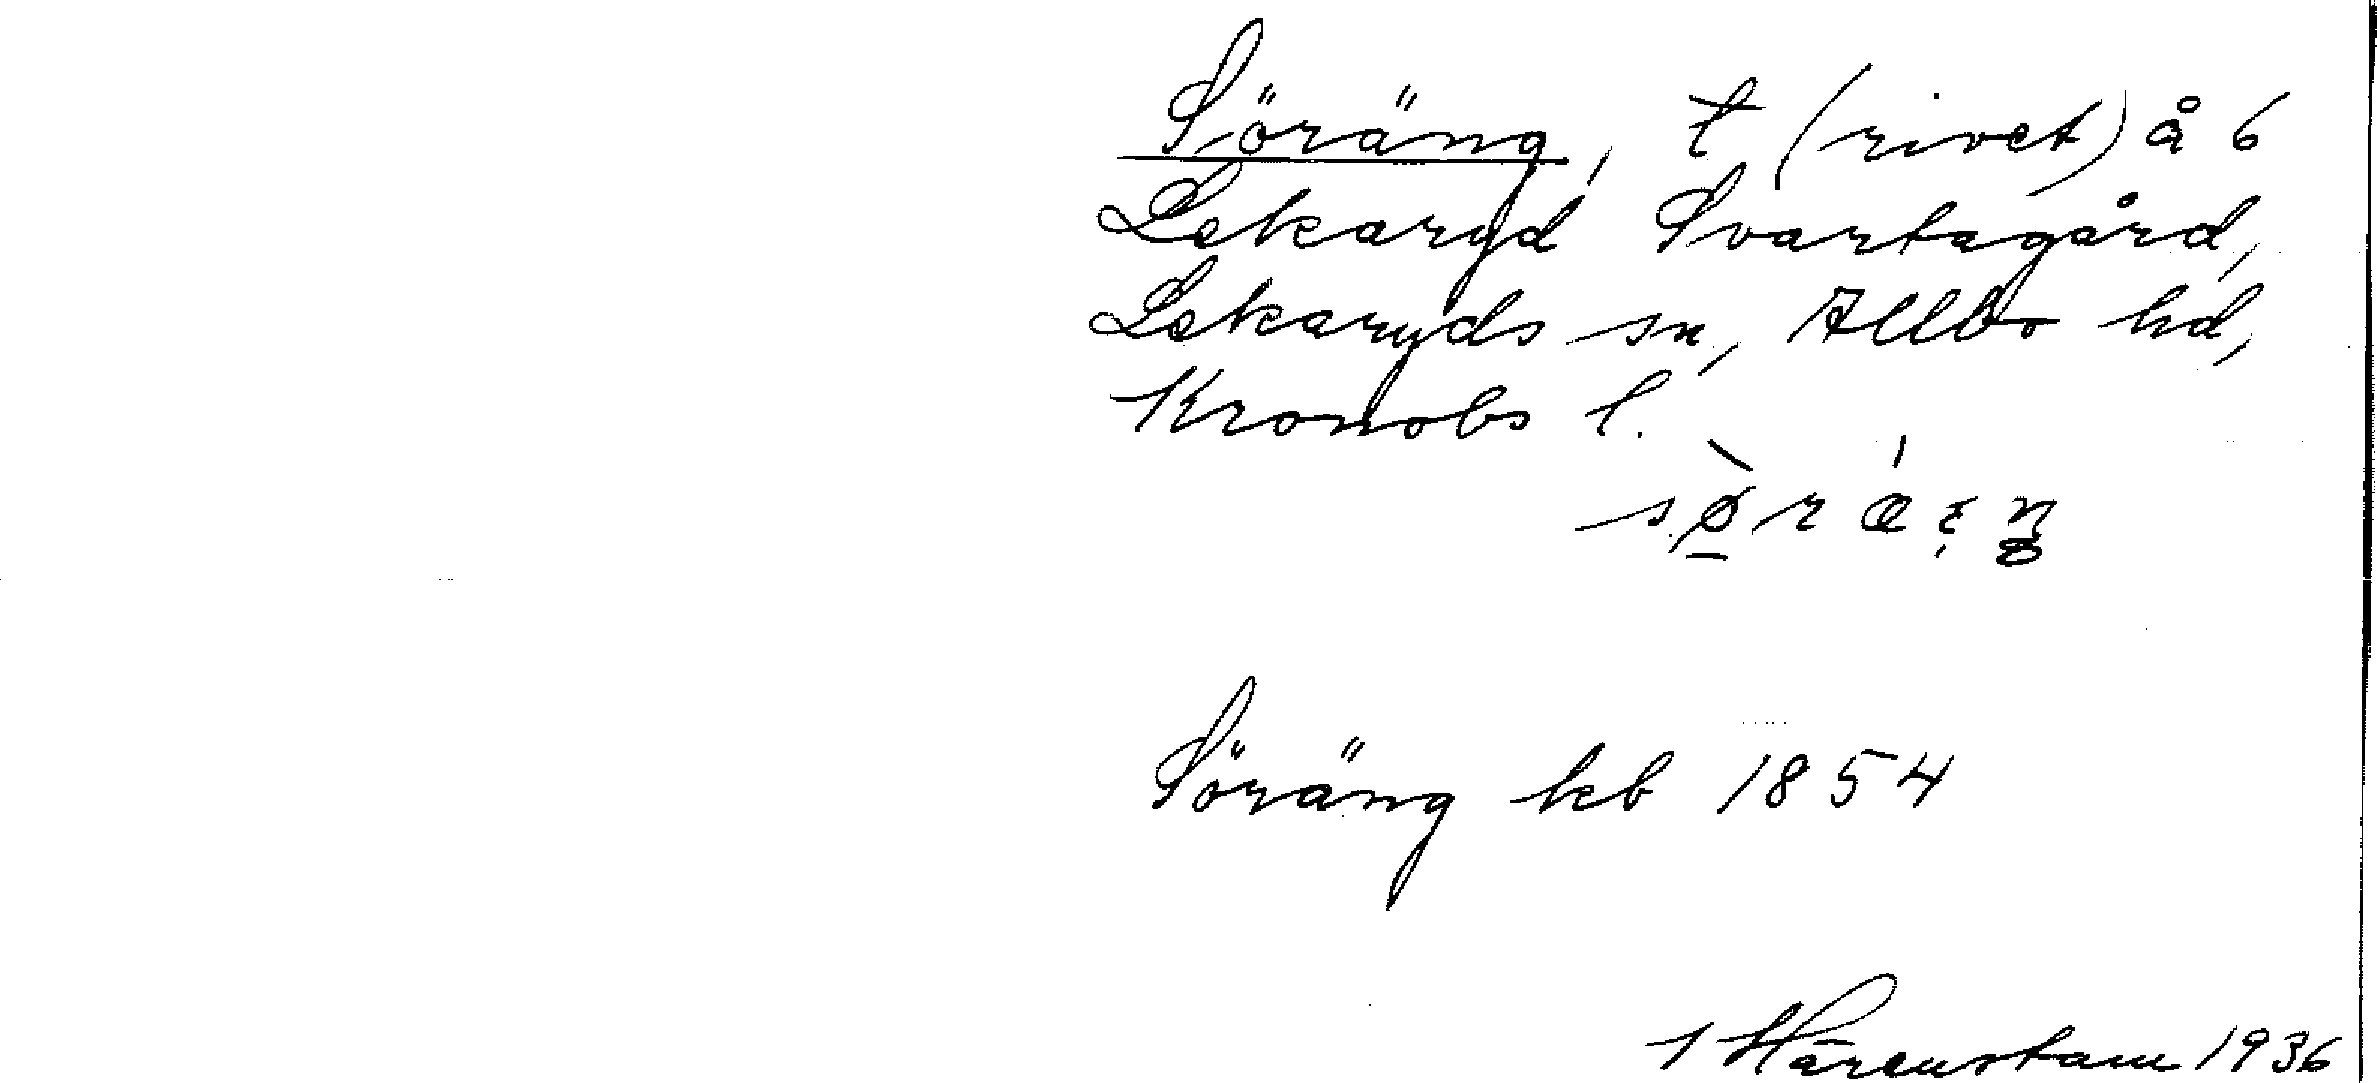 Söräng, t (rivet) å 6
Lekaryd Svartagård,
Lekaryds sn, Allbo hd,
Kronobs l.
Söräng kb 1854
1 Härenstam 1936